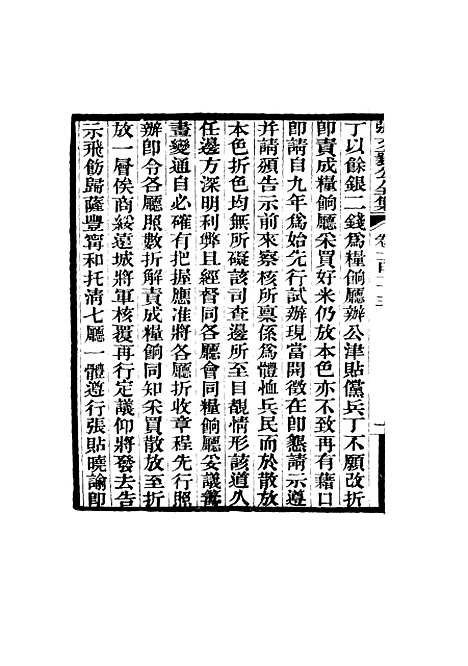 張文襄公全集 卷一百十三
丁以餘銀二錢爲糧餉廳辦公津貼儻兵丁不願改折
卽責成糧餉廳采買好米仍放本色亦不致再有藉口
卽請自九年爲始先行試辦現當開徵在卽懇請示遵
并請頒告示前來察核所稟係爲體恤兵民而於散放
本色折色均無所礙該司查邊所至目覩情形該道久
任邊方深明利弊且經督同各廳會同糧餉廳妥議籌
畫變通自必確有把握應准將各廳折收章程先行照
辦卽令各廳照數折解責成糧餉同知采買散放至折
放一層俟商綏遠城將軍核覆再行定議仰將發去告
示飛飭歸薩豐甯和托淸七廳一體遵行張貼曉諭卽